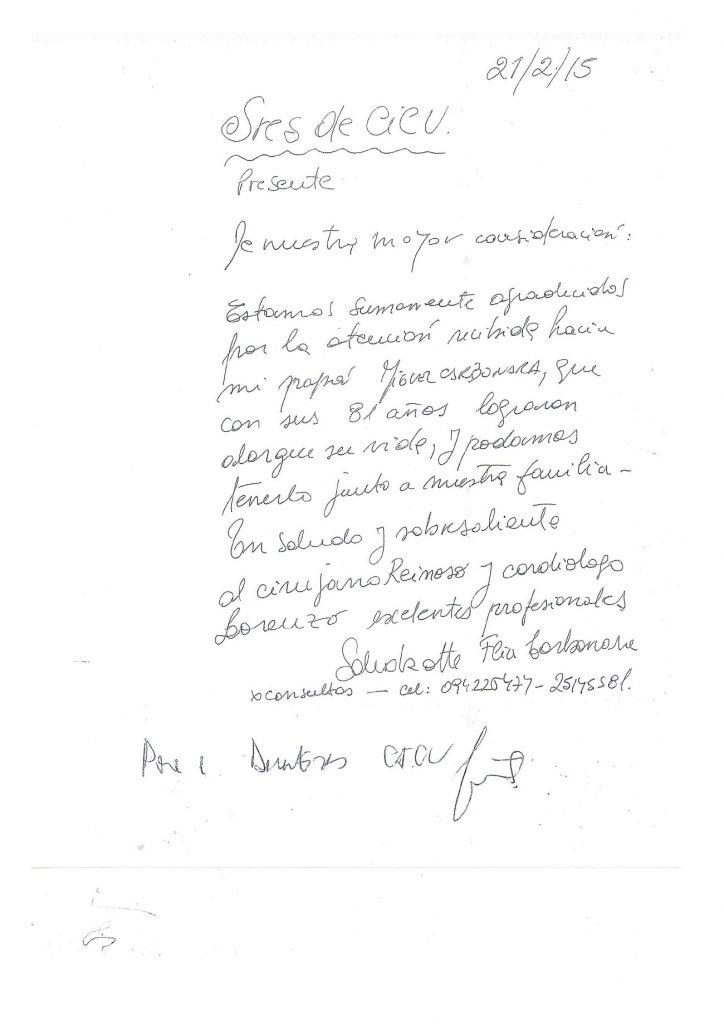 21/2/15
Sres de CICU.
Presente
De nuestra mayor consideración:
Estamos sumamente agradecidos
por la atención recibida hacia
mi papá Miguel CARBONARA, que
con sus 81 años lograron
alargue su vida, y podamos
tenerlo junto a nuestra familia -
Un saludo y sobresaliente
al cirujano Reimoso y cardiologo
Lorenzo exelentes profesionales
Saluda atte Flia Carbonara
x consultas — cel: 094225477 - 25145581.
Pase a Directores CICU